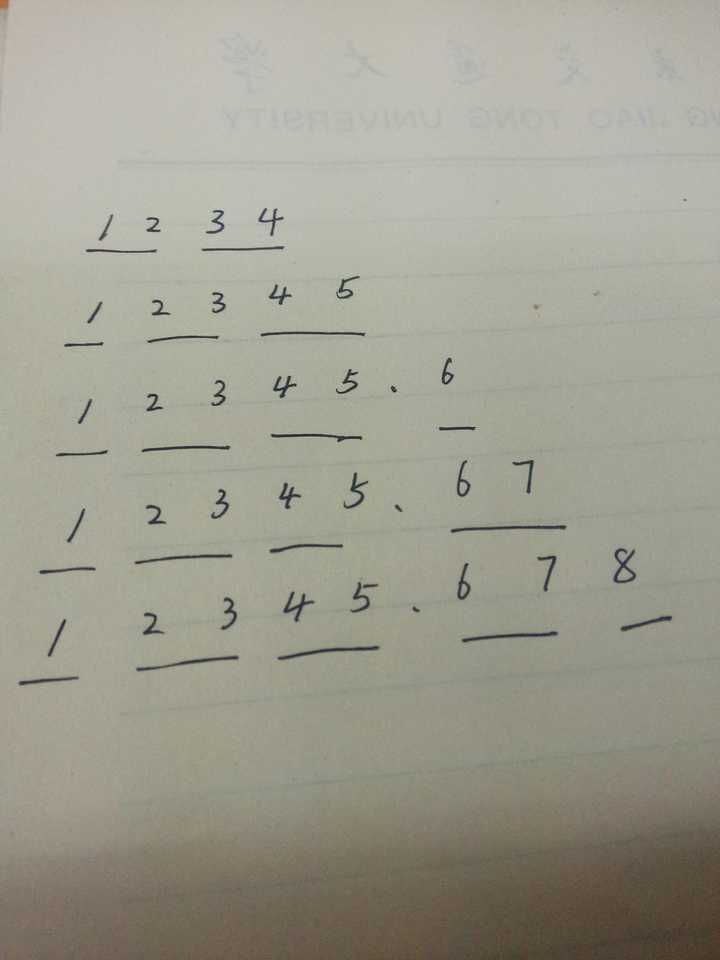 大 學
JIAO TONG UNIVERSITY
1 2 3 4
1 2 3 4 5
1 2 3 4 5 . 6
1 2 3 4 5 . 6 7
1 2 3 4 5 . 6 7 8